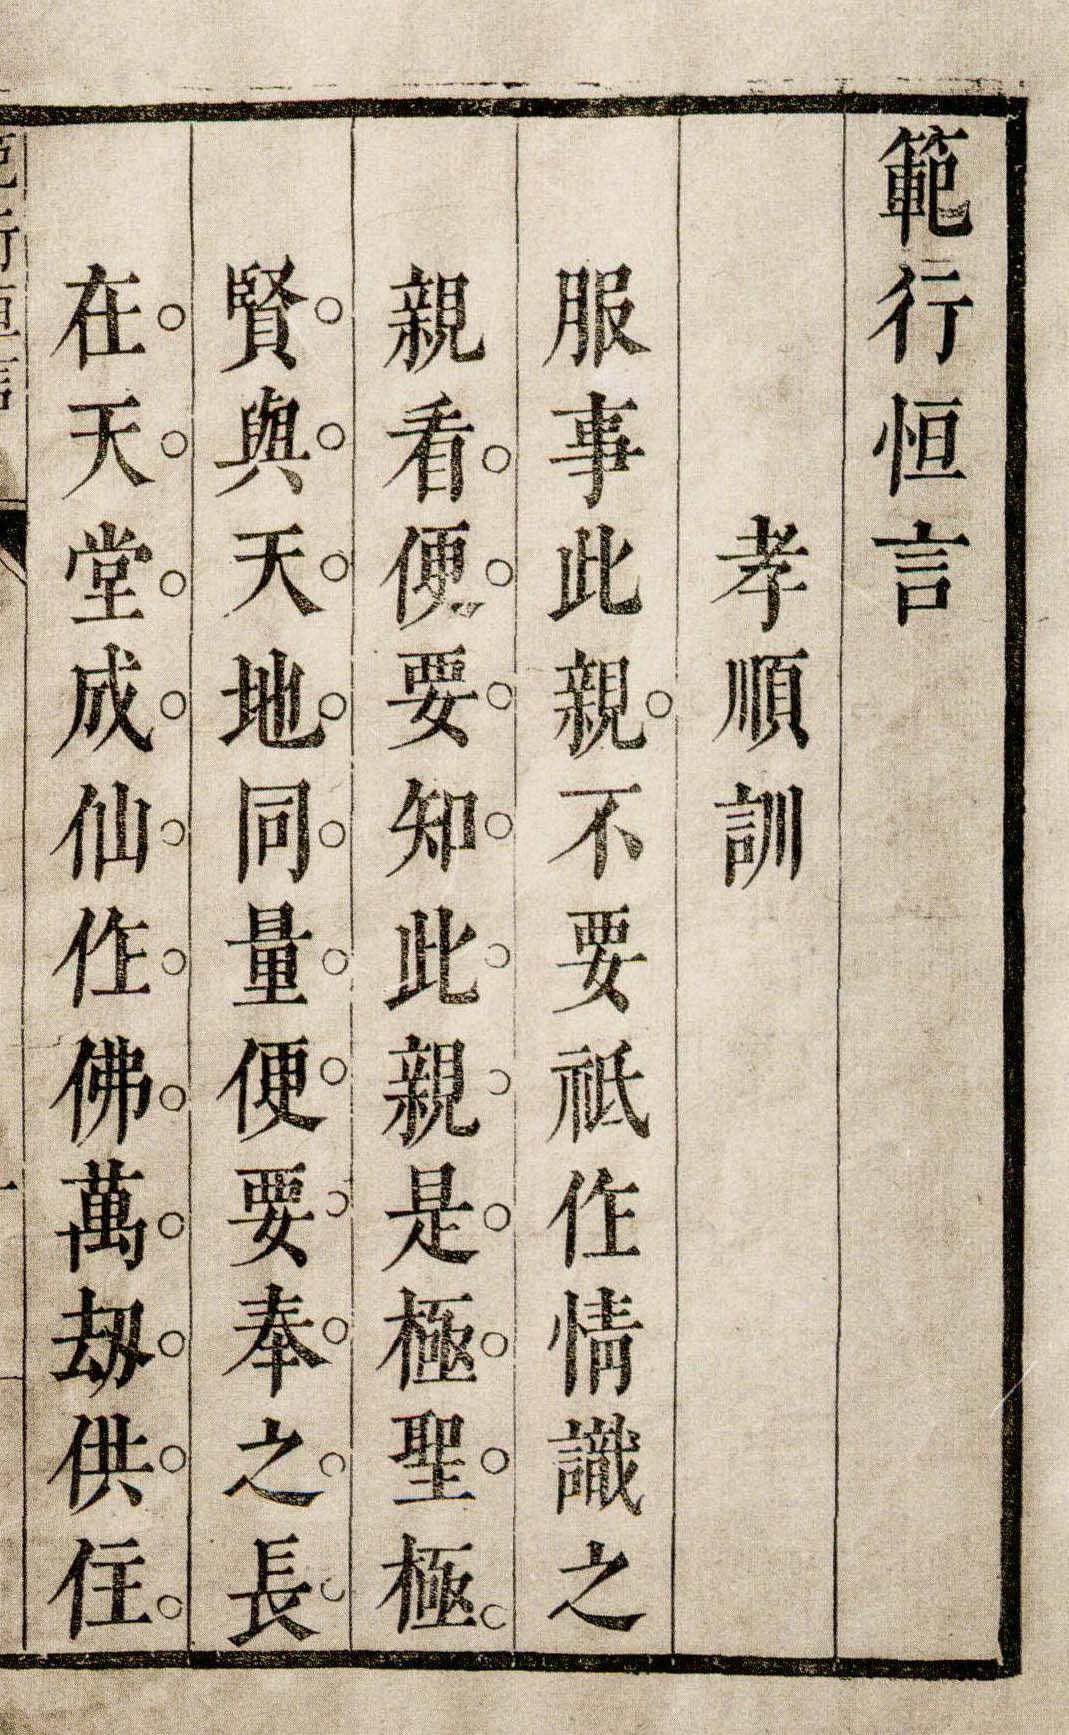 範行恒言
孝順訓
服事此親不要祗作情識之
親看便要知此親是極聖極
賢與天地同量便要奉之長
在天堂成仙作佛萬劫供住